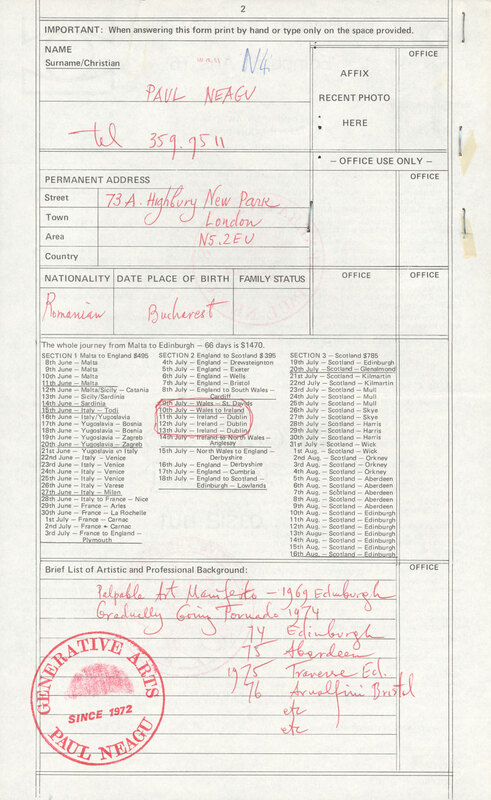 2
IMPORTANT: When answering this form print by hand or type only on the space provided.
NAME
Surname/Christian
N4
OFFICE
AFFIX
RECENT PHOTO
HERE
PAUL NEAGU
tel 359.7511
– OFFICE USE ONLY –
PERMANENT ADDRESS
OFFICE
Street 73 A. Highbury New Park
Town London
Area N5.2EU
Country
NATIONALITY DATE PLACE OF BIRTH FAMILY STATUS OFFICE OFFICE
Romanian Bucharest
The whole journey from Malta to Edinburgh – 66 days is $1470.
SECTION 1 Malta to England $495
8th June – Malta
9th June – Malta
10th June – Malta
11th June – Malta
12th June – Malta/Sicily – Catania
13th June – Sicily/Sardinia
14th June – Sardinia
15th June – Italy – Todi
16th June – Italy/Yugoslavia
17th June – Yugoslavia – Bosnia
18th June – Yugoslavia – Bosnia
19th June – Yugoslavia – Zagreb
20th June – Yugoslavia – Zagreb
21st June – Yugoslavia to Italy
22nd June – Italy – Venice
23rd June – Italy – Venice
24th June – Italy – Venice
25th June – Italy – Venice
26th June – Italy – Varese
27th June – Italy – Milan
28th June – Italy to France – Nice
29th June – France – Arles
30th June – France – La Rochelle
1st July – France – Carnac
2nd July – France – Carnac
3rd July – France to England – Plymouth
SECTION 2 – England to Scotland $395
4th July – England – Drewsteignton
5th July – England – Exeter
6th July – England – Wells
7th July – England – Bristol
8th July – England to South Wales –
Cardiff
9th July – Wales – St. Davids
10th July – Wales to Ireland
11th July – Ireland – Dublin
12th July – Ireland – Dublin
13th July – Ireland – Dublin
14th July – Ireland to North Wales –
Anglesey
15th July – North Wales to England –
Derbyshire
16th July – England – Derbyshire
17th July – England – Cumbria
18th July – England to Scotland –
Edinburgh – Lowlands
SECTION 3 – Scotland $785
19th July – Scotland – Edinburgh
20th July – Scotland – Glenalmond
21st July – Scotland – Kilmartin
22nd July – Scotland – Kilmartin
23rd July – Scotland – Mull
24th July – Scotland – Mull
25th July – Scotland – Mull
26th July – Scotland – Skye
27th July – Scotland – Skye
28th July – Scotland – Harris
29th July – Scotland – Harris
30th July – Scotland – Harris
31st July – Scotland – Wick
1st Aug. – Scotland – Wick
2nd Aug. – Scotland – Orkney
3rd Aug. – Scotland – Orkney
4th Aug. – Scotland – Orkney
5th Aug. – Scotland – Aberdeen
6th Aug. – Scotland – Aberdeen
7th Aug. – Scotland – Aberdeen
8th Aug. – Scotland – Aberdeen
9th Aug. – Scotland – Edinburgh
10th Aug. – Scotland – Edinburgh
11th Aug. – Scotland – Edinburgh
12th Aug. – Scotland – Edinburgh
13th Aug. – Scotland – Edinburgh
14th Aug. – Scotland – Edinburgh
15th Aug. – Scotland – Edinburgh
16th Aug. – Scotland – Edinburgh
Brief List of Artistic and Professional Background:
OFFICE
Palpable Art Manifesto – 1969 Edinburgh
Gradually Going Tornado – 1974
74 Edinburgh
75 Aberdeen
1975 Traverse Ed.
76 Arnolfini Bristol
etc
etc
GENERATIVE ARTS
SINCE 1972
PAUL NEAGU